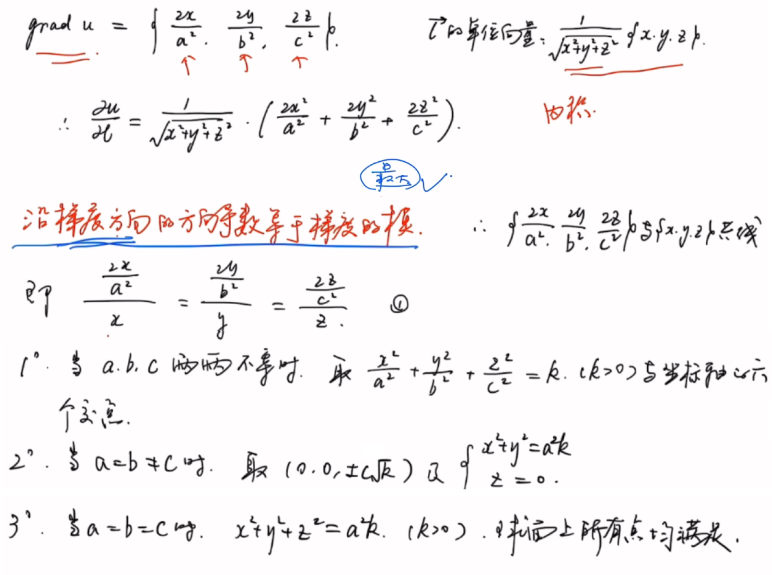 grad u = { 2x/a², 2y/b², 2z/c² }. r⃗的单位向量: 1/√(x²+y²+z²) {x.y.z}.
∴ ∂u/∂l = 1/√(x²+y²+z²) · (2x²/a² + 2y²/b² + 2z²/c²). 内积.
最大
沿梯度方向的方向导数等于梯度的模. ∴ {2x/a². 2y/b². 2z/c²}与{x.y.z}共线
即 (2x/a²)/x = (2y/b²)/y = (2z/c²)/z. ①
1°. 当 a.b.c 两两不等时. 取 x²/a² + y²/b² + z²/c² = k. (k>0)与坐标轴的六
个交点.
2°. 当 a=b≠c时. 取 (0.0.±c√k) 及 { x²+y²=a²k
z=0.
3°. 当a=b=c时. x²+y²+z²=a²k. (k>0). 球面上所有点均满足.